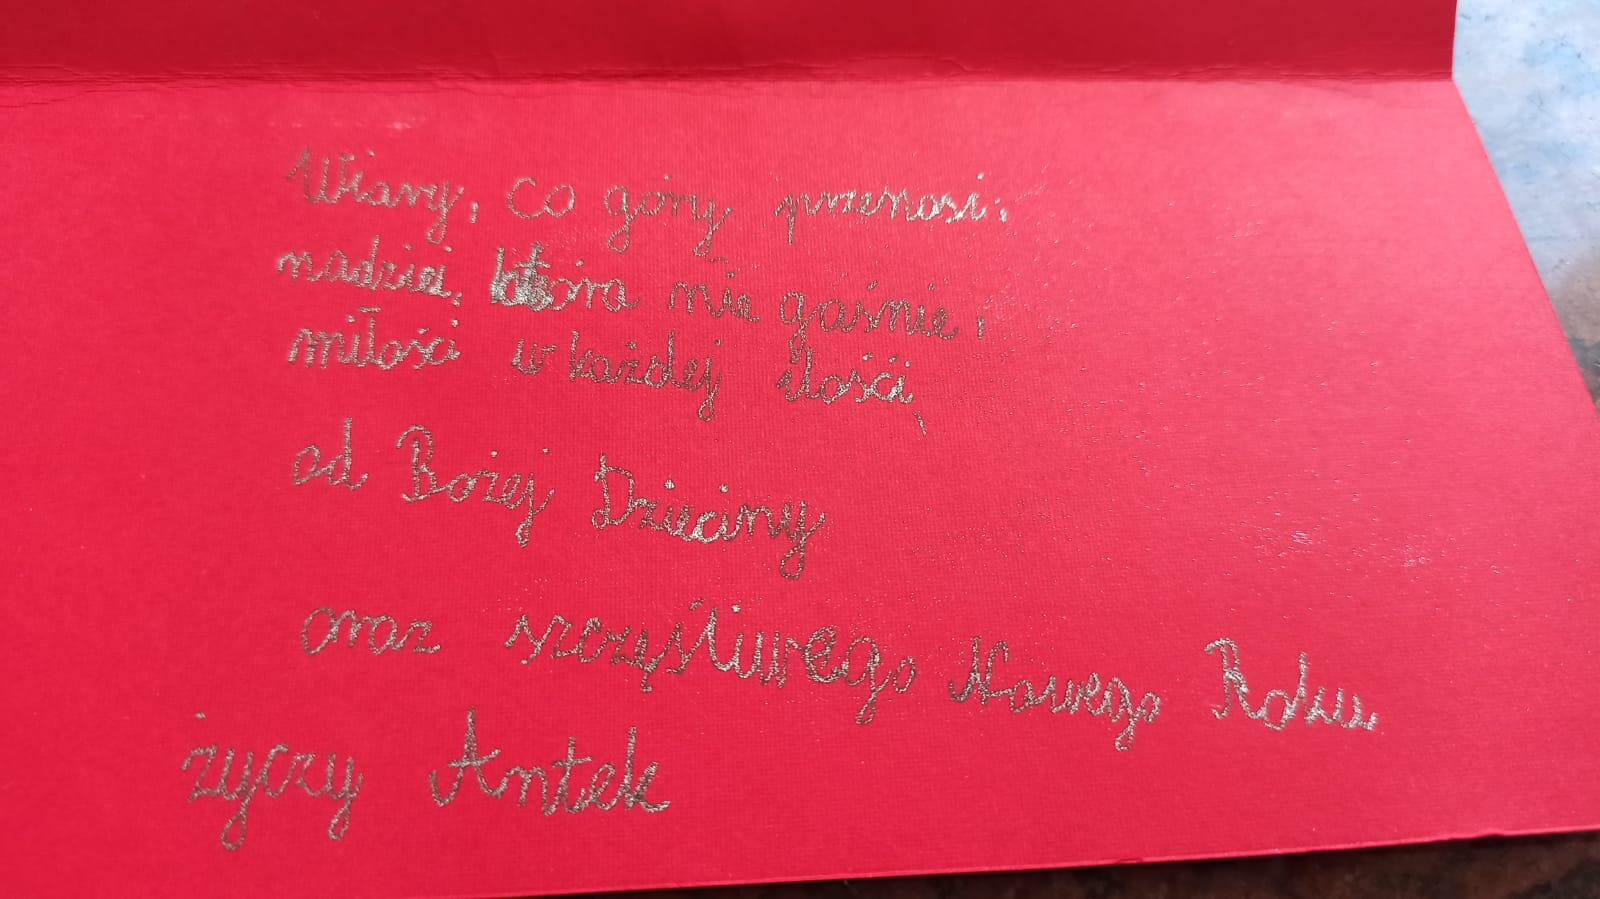 Wiary, co góry przenosi,
nadziei, która nie gaśnie,
miłości w każdej ilości,
od Bożej Dzieciny
oraz szczęśliwego Nowego Roku
życzy Antek